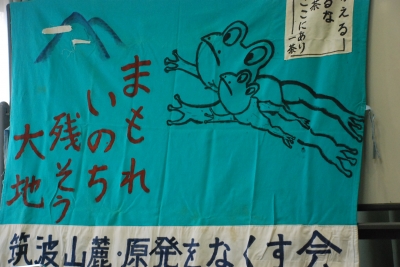 まもれ
いのち
残そう
大地
るな
一茶
ここにあり
一茶
筑波山麓・原発をなくす会